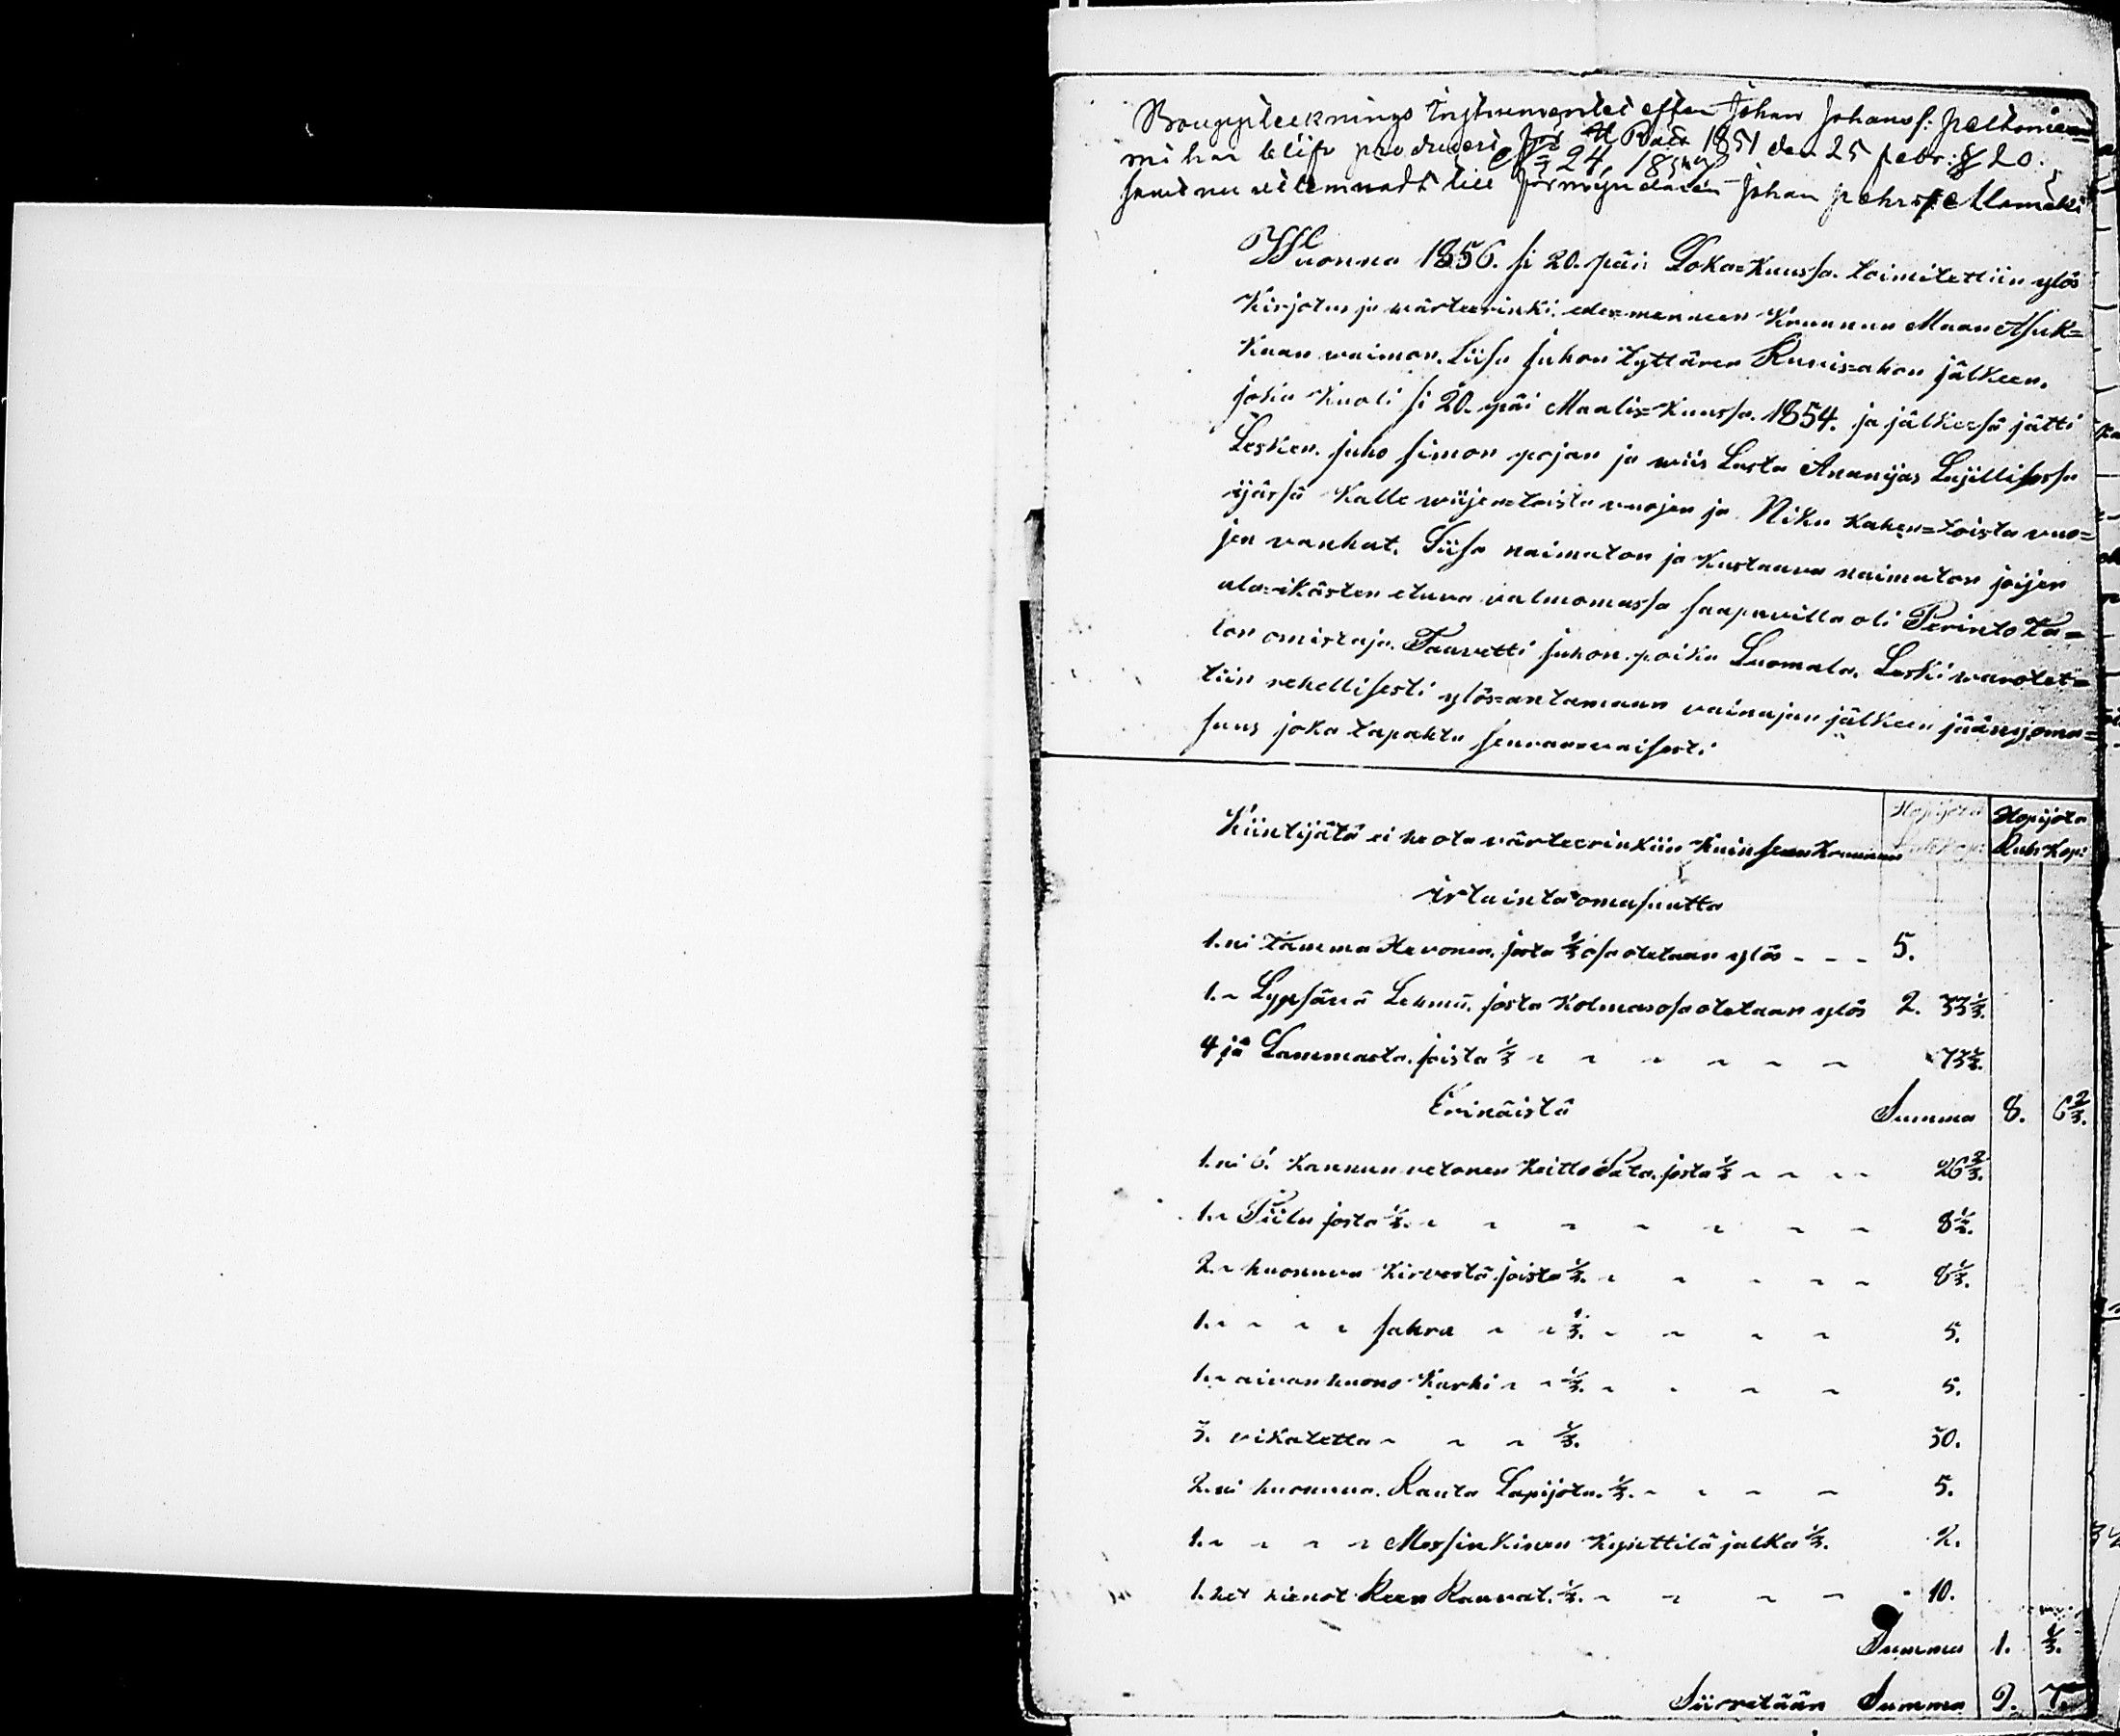 Bouppteknings Instrumentet efter Johan Johans s: Peltoniemi
mi har blifv produceri 1851 den 25 febr: § 20.
№ 24, 18
samt nu utlemnadt till förmyndaren Johan Pehrs s:
Wuonna 1856. si 20. päi: Loka=kuussa. toimitettiin ylös
Kirjotus ja wärteerinki. edes=menneen Kruunun Maan Asuk=
kaan waimon. Liisa Juhon Tyttären Ruuis=ahon jälkeen.
joka kuoli si 20. päi Maalis=kuussa. 1854. ja jälkeesä jätti
Lesken. Juho Simon pojan ja wiis Lasta Ananijas Lajillisessa
ijässä Kalle wiijen=toista vuojen ja Niku kahen=toista vuo=
jen vanhat. Liisa naimaton ja Kustaava naimaton joijen
ala=ikästen etuva valmomassa saapuvilla oli Perinto Ta=
lon omistaja. Taavetti Juhon. poika Luomala. Leski warotet=
tiin rehellisesti ylös=antamaan vainajan jälkeen jääny oma=
suus joka tapahtu seuraavaisesti.
Kiintijätä ei he ota värteerinkiin kuin se on Kruunun
Hopijota Hopijota
Rub: Kop: Rub: Kop:
irtainta omasuutta
1. ni Tamma Hevonen. josta 1/3 osa otetaan ylös - - - 5.
1. ~ Lypsävä Lehmä. josta kolmas osa otetaan ylös 2. 33 1/3.
4 jä Lammasta. joista 1/3 ~ ~ ~ ~ ~ ~ 73 1/3.
Erinäistä Summa 8. 6 2/3.
1. ni 6. kannun vetonen Keitto Pata. josta 1/3 ~ ~ ~ ~ 26 2/3.
1. ~ Piilu josta 1/3. ~ ~ ~ ~ ~ ~ ~ 8 1/3.
2. ~ huonuva kirvestä joista 1/3. ~ ~ ~ ~ ~ 8 1/3.
1. ~ ~ ~ ~ sahra ~ ~ 1/3. ~ ~ ~ ~ 5.
1. ~ aivan huono Karhi ~ ~ 1/3. ~ ~ ~ ~ 5.
3. vikatetta ~ ~ ~ 1/3. 30.
2. ni huonuva. Rauta Lapijota. 1/3. ~ ~ ~ ~ 5.
1. ~ ~ ~ ~ Messinkinen Kynttilä jalka 1/3. 2.
1. het hienot Reen Rauvat. 1/3. ~ ~ ~ ~ 10.
Summa 1. 1/3.
Siirretään Summa 9. 7.